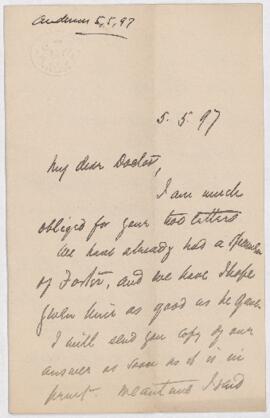 Anderson 5,5,97
5. 5. 97
My dear Doctor,
I am much
obliged for your two letters
We have already had a specimen
of Foster, and we have I hope
given him as good as he gave.
I will send you copy of our
answer as soon as it is in
print. Meantime I send